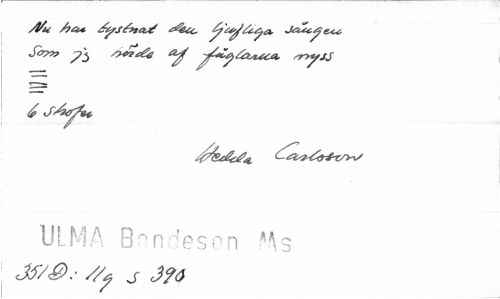 Nu har tystnat den ljufliga sången
Som jg hörde af fåglarna nyss
6 strofer
Hedda Carlsson
ULMA Bondeson Ms
351 D: 11q s 390